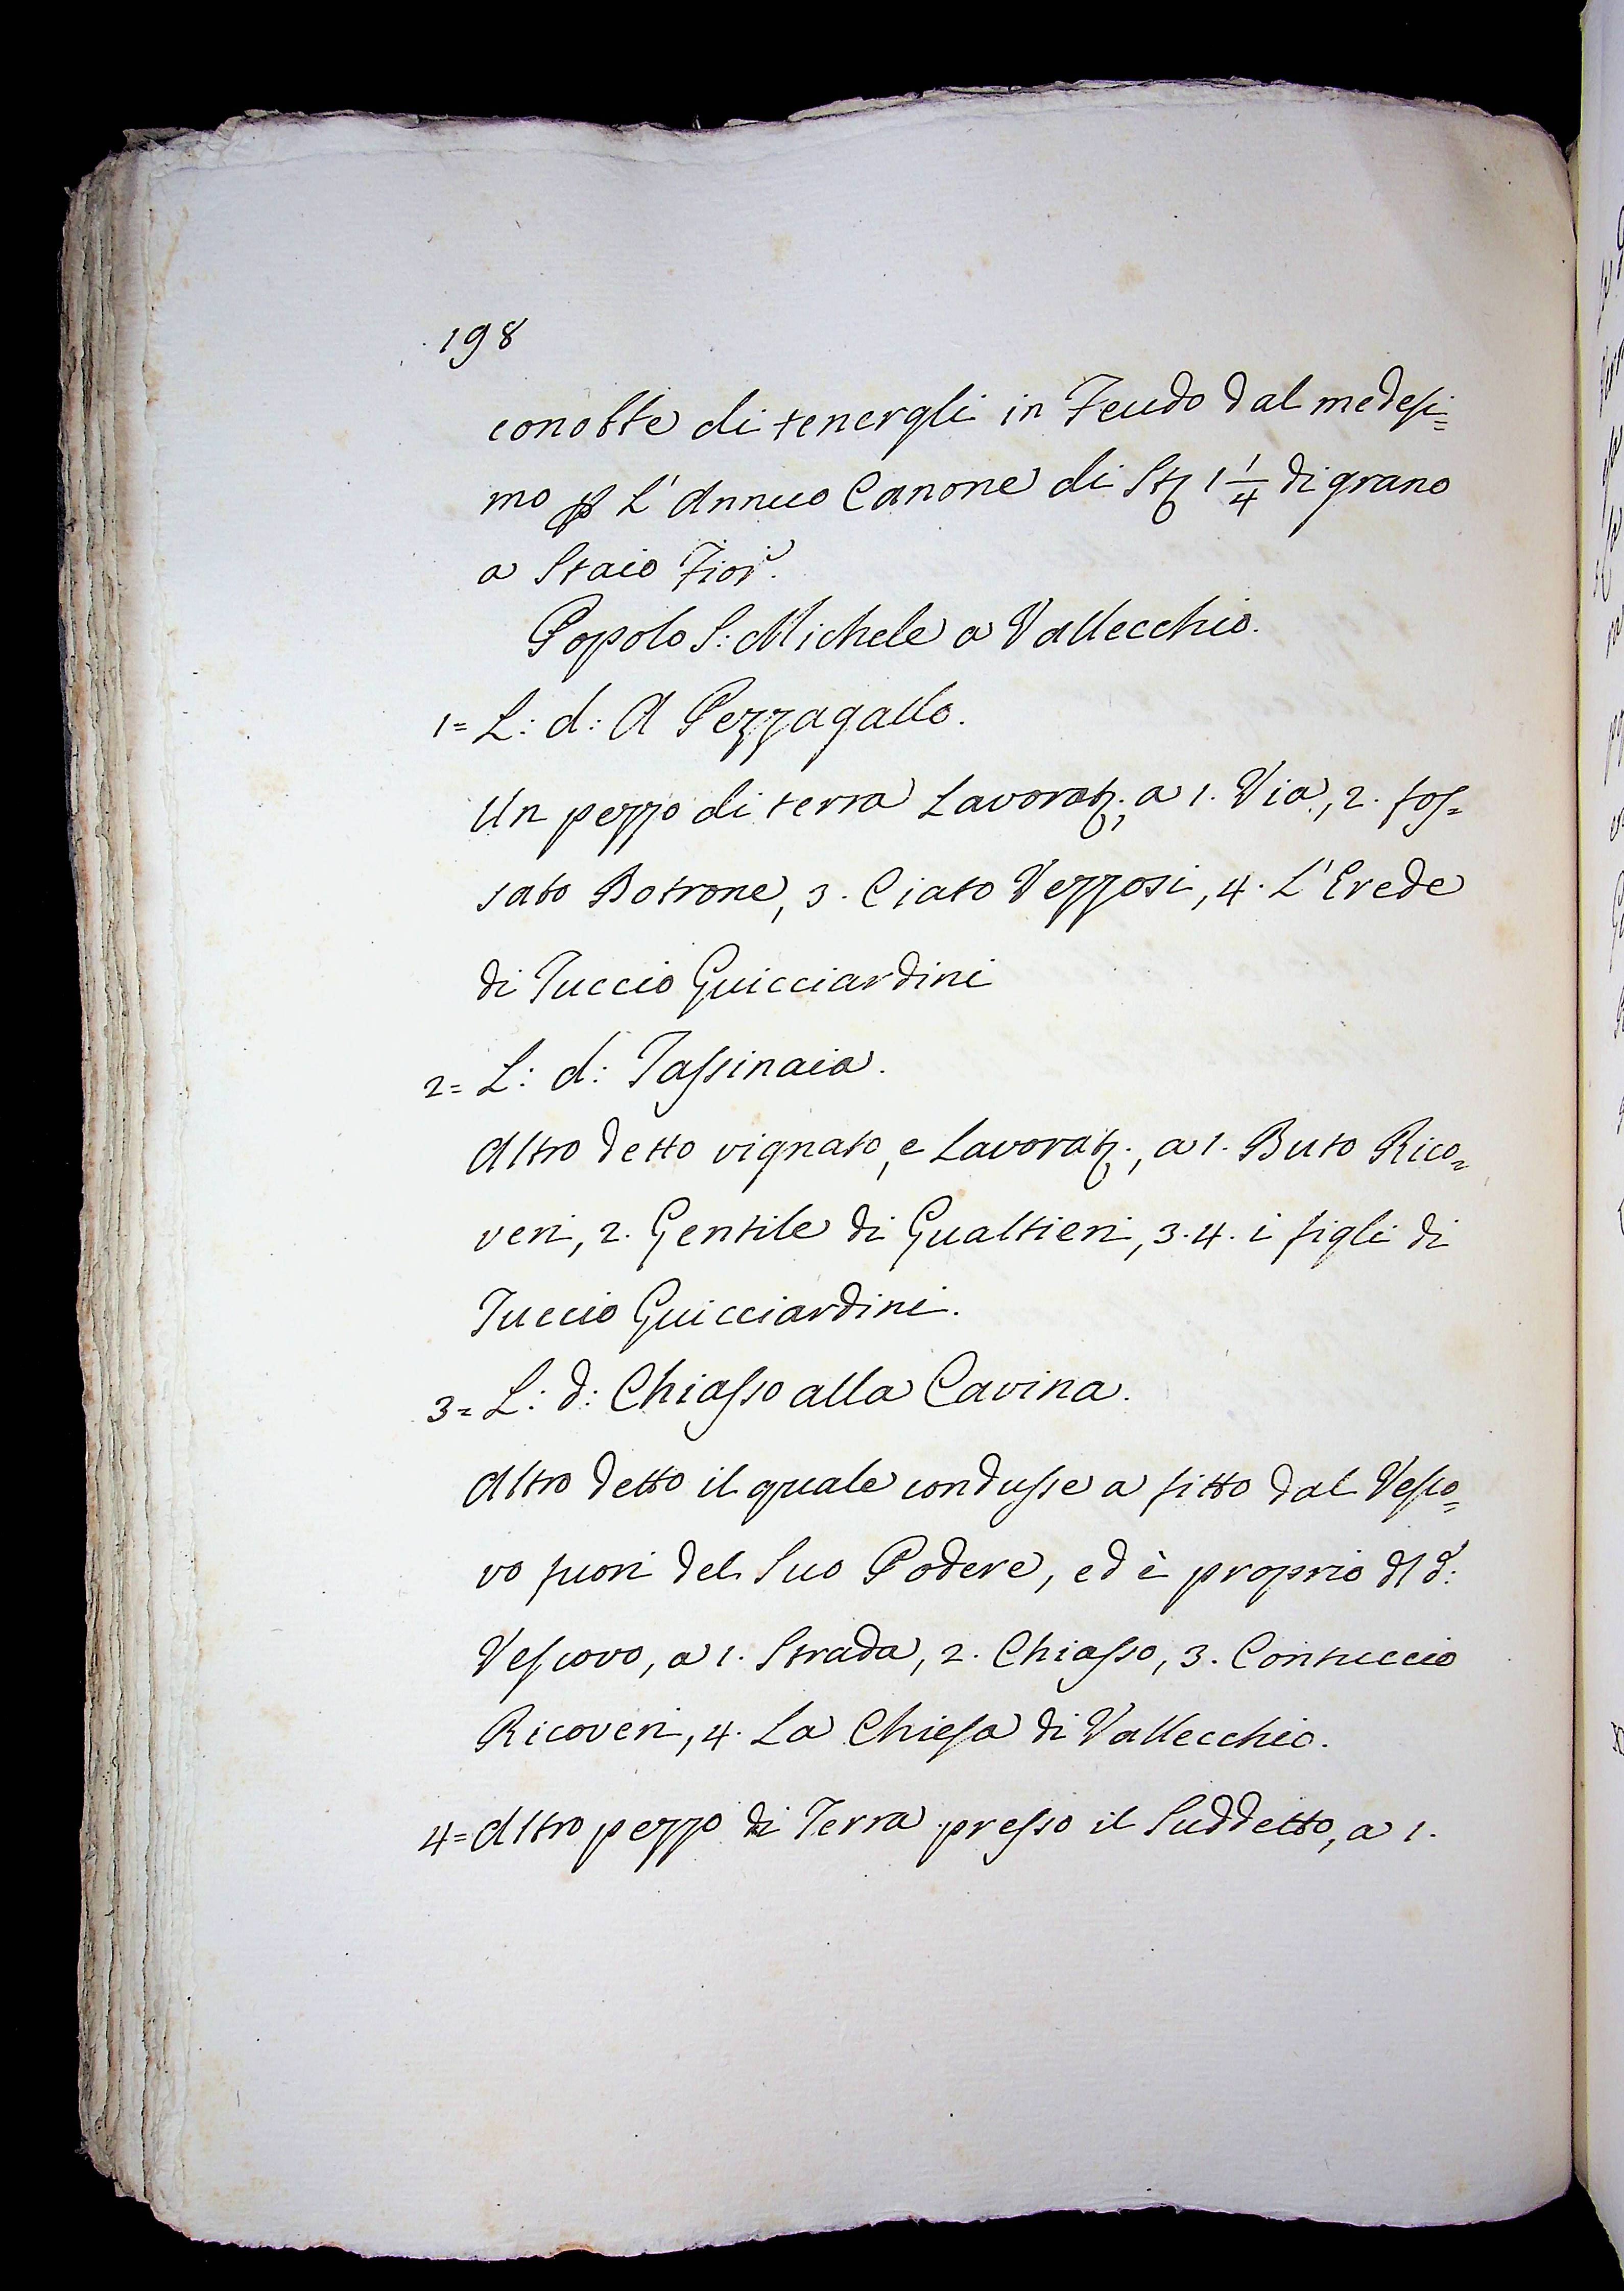 198
conobbe di tenergli in Feudo dal medesi=
mo p L'Annuo Canone di St 1 1/4 di grano
a Staio Fior.
Popolo S: Michele a Vallecchio.
1= L: d: A Pezzagallo.
Un pezzo di terra Lavorat.; a 1. Via, 2. fos=
sato Botrone, 3. Ciato Vezzosi, 4. L'Erede
di Tuccio Guicciardini
2= L: d: Tassinaia.
Altro detto vignato, e Lavorat., a 1. Buto Rico=
veri, 2. Gentile di Gualtieri, 3. 4. i figli di
Tuccio Guicciardini.
3= L: d: Chiasso alla Cavina.
Altro detto il quale condusse a fitto dal Vesco=
vo fuori del Suo Podere, ed è proprio dl d:
Vescovo, a 1. Strada, 2. Chiasso, 3. Contuccio
Ricoveri, 4. La Chiesa di Vallecchio.
4= Altro pezzo di Terra presso il Suddetto, a 1.